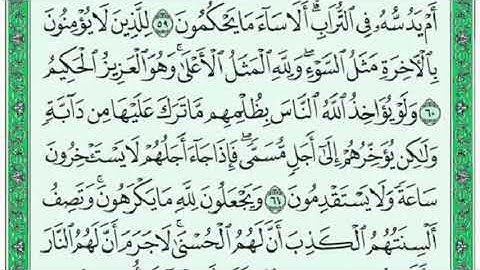 أَمْ يَدُسُّهُۥ فِى ٱلتُّرَابِ ۗ أَلَا سَآءَ مَا يَحْكُمُونَ ٥٩ لِلَّذِينَ لَا يُؤْمِنُونَ
بِٱلْـَٔاخِرَةِ مَثَلُ ٱلسَّوْءِ ۖ وَلِلَّهِ ٱلْمَثَلُ ٱلْأَعْلَىٰ ۚ وَهُوَ ٱلْعَزِيزُ ٱلْحَكِيمُ
٦٠ وَلَوْ يُؤَاخِذُ ٱللَّهُ ٱلنَّاسَ بِظُلْمِهِم مَّا تَرَكَ عَلَيْهَا مِن دَآبَّةٍ
وَلَـٰكِن يُؤَخِّرُهُمْ إِلَىٰٓ أَجَلٍ مُّسَمًّى ۖ فَإِذَا جَآءَ أَجَلُهُمْ لَا يَسْتَـْٔخِرُونَ
سَاعَةً ۖ وَلَا يَسْتَقْدِمُونَ ٦١ وَيَجْعَلُونَ لِلَّهِ مَا يَكْرَهُونَ ۚ وَتَصِفُ
أَلْسِنَتُهُمُ ٱلْكَذِبَ أَنَّ لَهُمُ ٱلْحُسْنَىٰ ۖ لَا جَرَمَ أَنَّ لَهُمُ ٱلنَّارَ